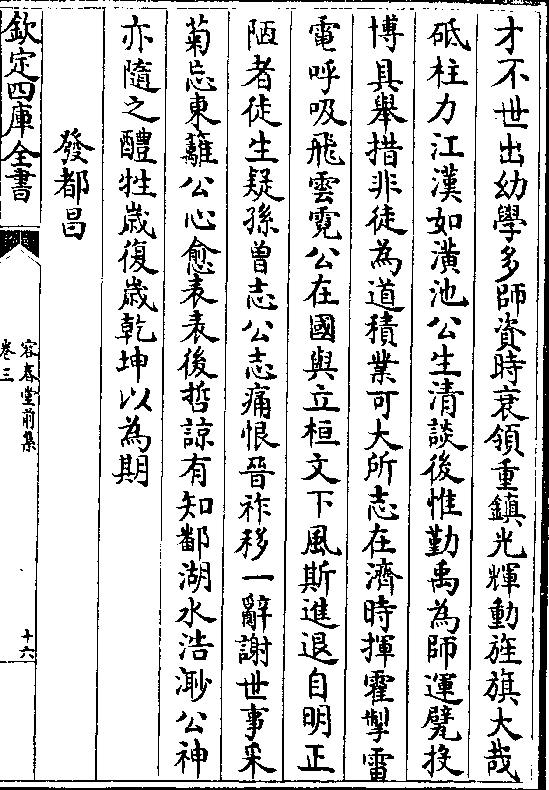 才不世出幼學多師資時衰領重鎮光輝動旌旗大哉
砥柱力江漢如潢池公生清談後惟勤禹為師運甓投
博具舉措非徒為道積業可大所志在濟時揮霍掣雷
電呼吸飛雲霓公在國與立桓文下風斯進退自明正
陋者徒生疑孫曽志公志痛恨晉祚移一辭謝世事采
菊忘東籬公心愈表表後哲諒有知鄱湖水浩渺公神
亦隨之醴牲歳復歳乾坤以為期
發都昌
欽定四庫全書
容春堂前集
卷三
十六